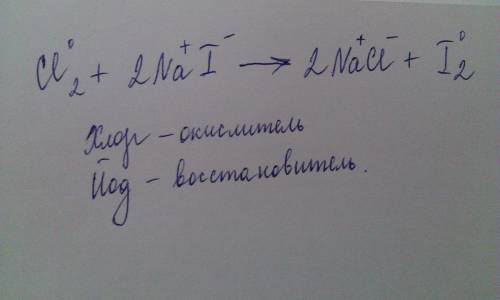 Cl⁰₂ + 2Na⁺I⁻ → 2Na⁺Cl⁻ + I⁰₂
Хлор – окислитель
Йод – восстановитель.